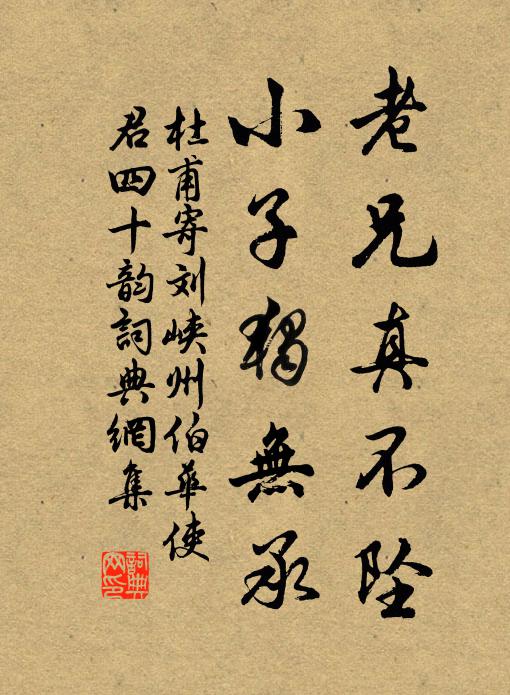 老兄真不坠
小子独無承
杜甫寄刘峡州伯華使
君四十韵詞典網集
詞典網印